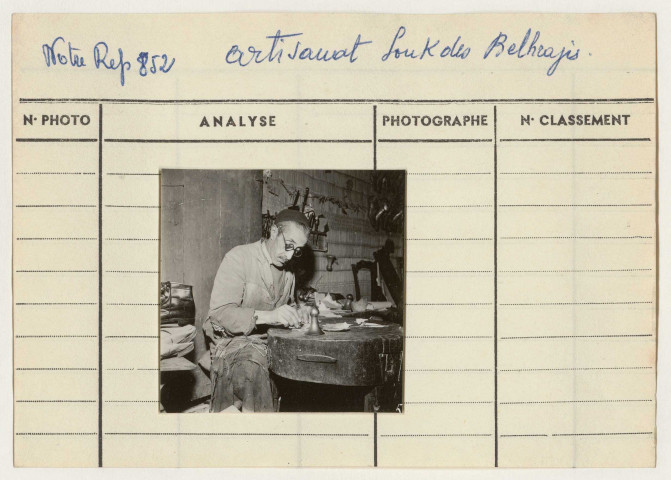 Notre Ref 852 artisanat Souk des Belhrajis.
N· PHOTO ANALYSE PHOTOGRAPHE N· CLASSEMENT